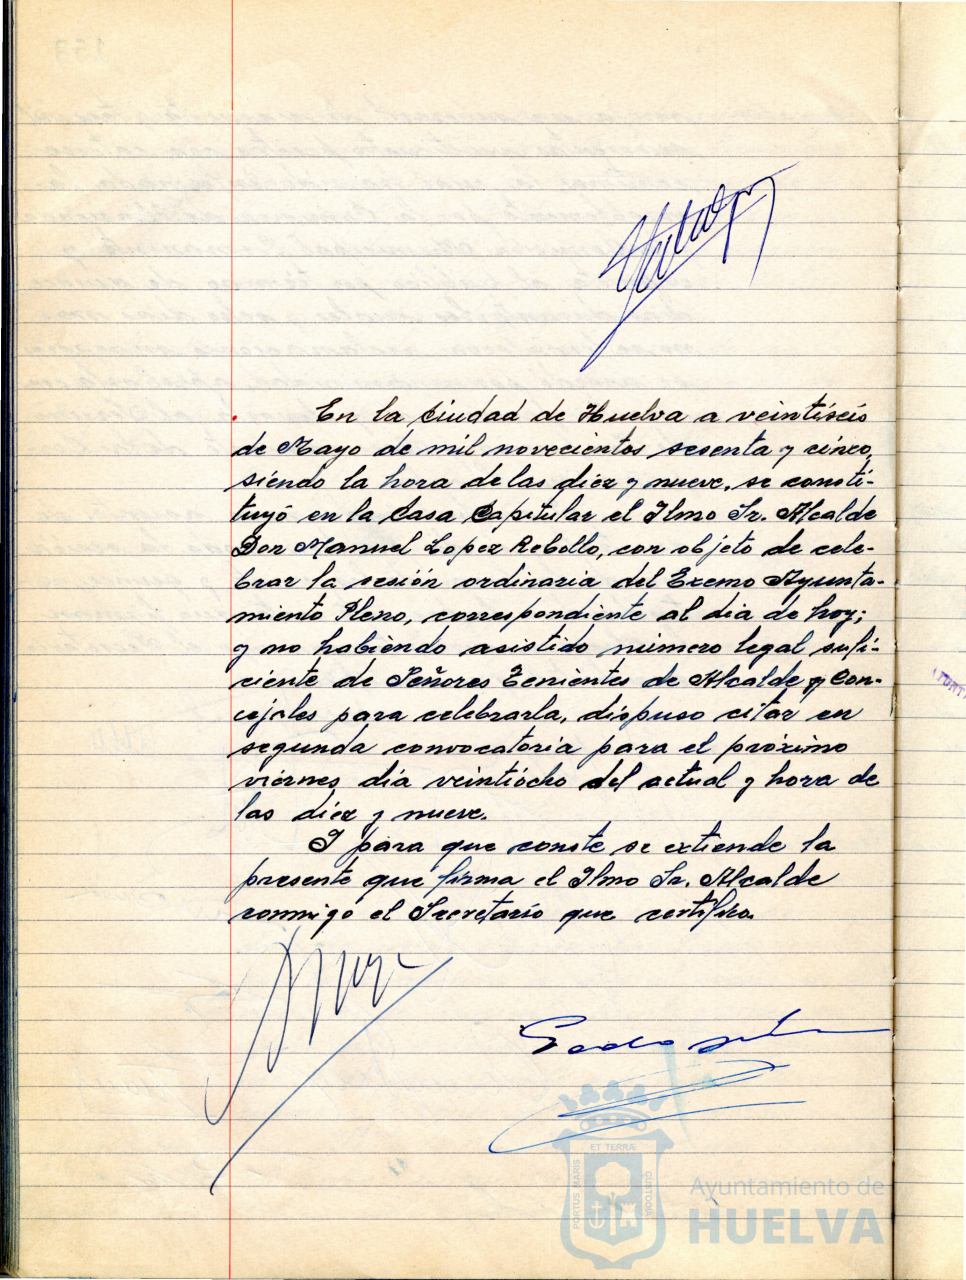 En la Ciudad de Huelva a veintiseis
de Mayo de mil novecientos sesenta y cinco,
siendo la hora de las diez y nueve, se consti-
tuyó en la Casa Capitular el Ilmo Sr. Alcalde
Don Manuel Lopez Rebollo, con objeto de cele-
brar la sesión ordinaria del Excmo Ayunta-
miento Pleno, correspondiente al dia de hoy;
y no habiendo asistido número legal sufi-
ciente de Señores Tenientes de Alcalde y Con-
cejales para celebrarla, dispuso citar en
segunda convocatoria para el próximo
viernes dia veintiocho del actual y hora de
las diez y nueve.
Y para que conste se extiende la
presente que firma el Ilmo Sr. Alcalde
conmigo el Secretario que certifico.
ET TERRÆ
PORTUS MARIS
CUSTODIA
Ayuntamiento de
HUELVA